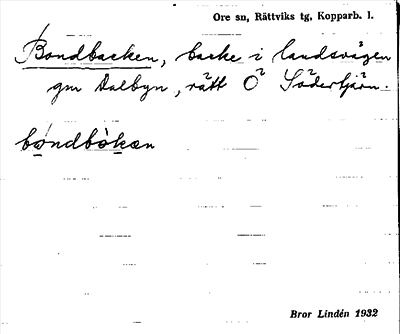 Ore sn, Rättviks tg, Kopparb. l.
Bondbacken, backe i landsvägen
gm Dalbyn, rätt Ö Södertjärn.
bo̠ndbòkan
Bror Lindén 1932